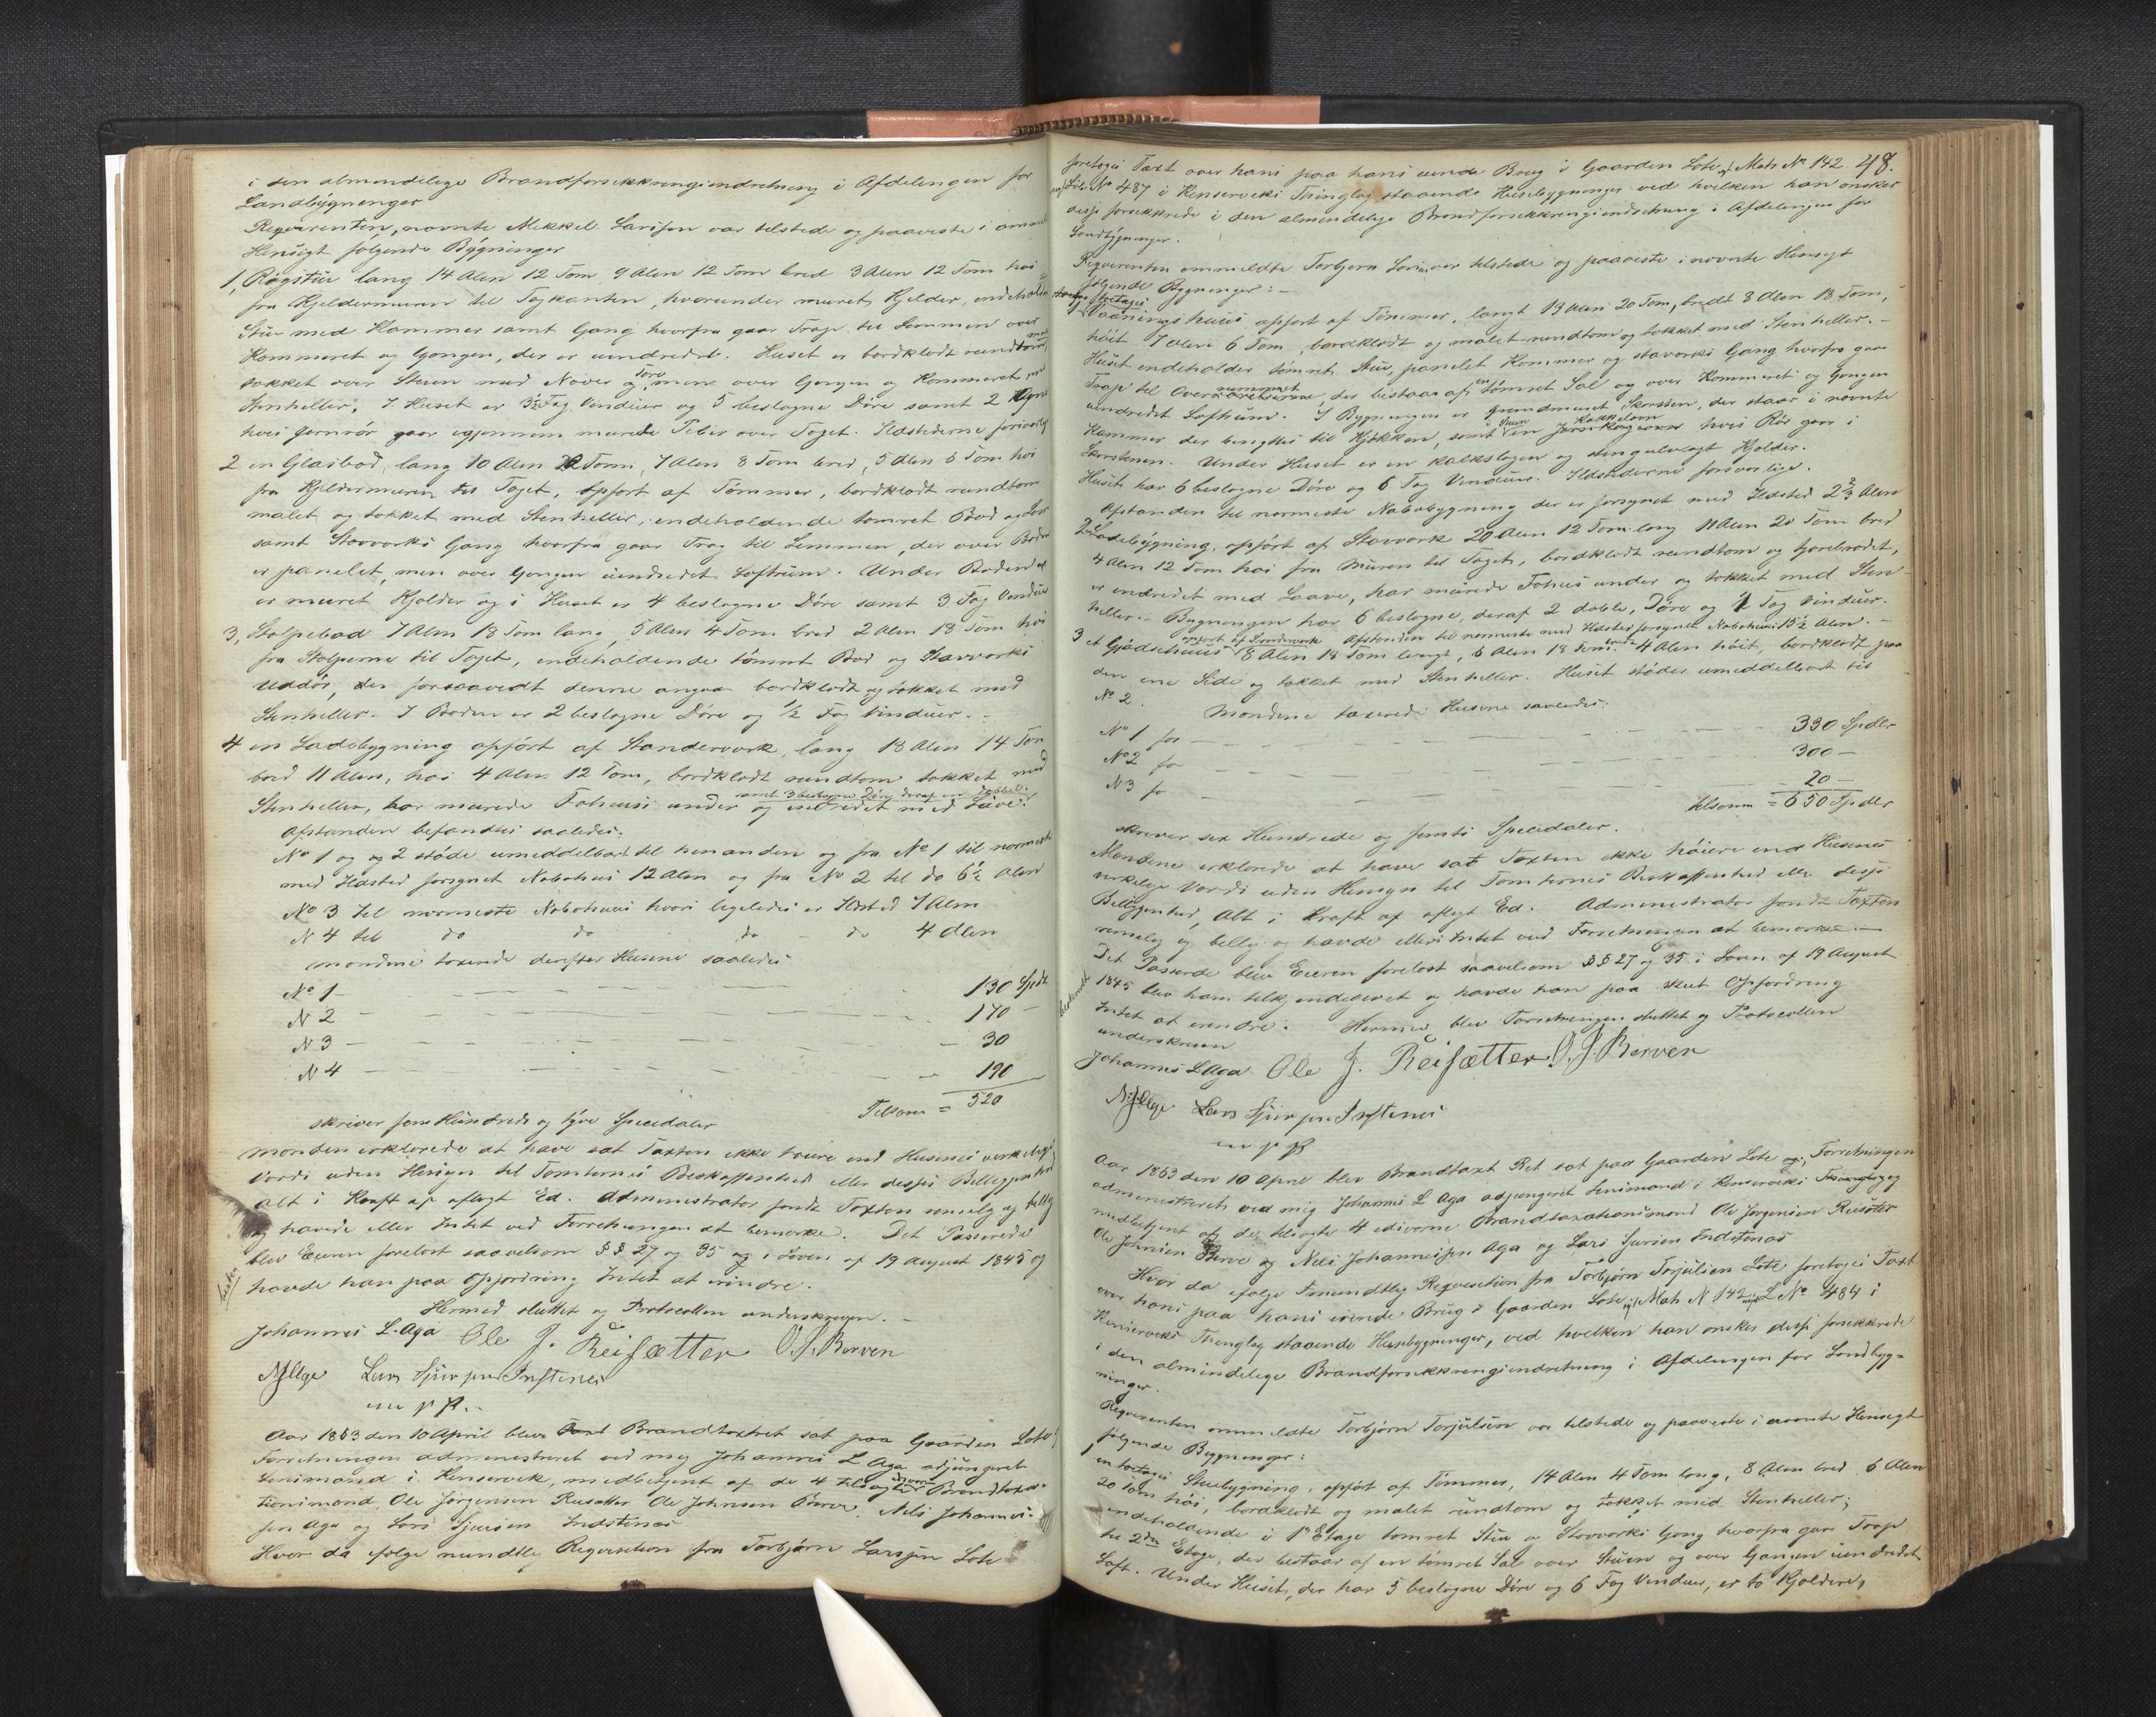 i den almindelige Brandforsikkrengsindretning i Afdelingen for
Landbygninger
Reqvirenten, nævnte Mikkel Larsen var tilstede og paaviste i
Hensigt følgende Bygninger
1, Røgstue lang 14 Alen 12 Tom 9 Alen 12 Tom bred 3 Alen 12 Tom høi
fra Kjeldermuren til Tagkanten, hvorunder muret Kjelder, indeholder
Stue med Kammer samt Gang hvorfra gaar Trap til Lemmen over
Kammeret og Gangen, der er uindredet. Huset er bordklædt rundtom,
tækket over Stuen med Næver og Torv, mens over Gangen og Kammeret med
Stenheller. I Huset er 3½ Fag Vinduer og 5 beslagne Døre samt 2
hvis Jernrør gaar igjennem murede Piber over Taget. Ildstederne forsvarlig
2 en Glasbod, lang 10 Alen Tom, 7 Alen 8 Tom bred, 5 Alen 6 Tom høi
fra Kjeldermuren til Taget, opført af Tømmer, bordklædt rundtom
malet og tækket med Stenheller, indeholdende tømret Bod og
samt Stavværks Gang hvorfra gaar Trap til Lemmen, der over Boden
er panelet, men over Gangen uindredet Loftrum. Under Boden
er muret Kjelder og i Huset er 4 beslagne Døre samt 3 Fag Vinduer
3, Stolpebod 7 Alen 18 Tom lang, 5 Alen 4 Tom bred 2 Alen 18 Tom høi
fra Stolperne til Taget, indeholdende tømret Bod og Stavværks
Uddør, der forsaavidt denne angaar bordklædt og tækket med
Stenheller. I Boden er 2 beslagne Døre og ½ Fag Vinduer.
4 en Ladebygning opført af Standerværk lang 18 Alen 14 Tom
bred 11 Alen, høi 4 Alen 12 Tom, bordklædt rundtom tækket med
samt 3 beslagne Døre deraf en dobbel.
Stenheller, har murede Fæhuse under og indredet med Lave.
Afstanden befandtes saaledes:
No 1 og 2 støde umiddelbart til hinanden og fra No 1 til nærmeste
med Ildsted forsynet Nabohus 12 Alen og fra No 2 til do 6½ Alen
No 3 til nærmeste Nabohuus hvori ligeledes er Ildsted 7 Alen
N 4 til do do do do 4 Alen
Mændene taxerede derefter Husene saaledes
No 1 130 Spdl
N 2 170 -
N 3 30
N 4 190
Tilsam = 520
skriver fem Hundrede og tyve Speciedaler
Mændene erklærede at have sat Taxten ikke høiere end Husenes virkelige
Værdi uden Hensyn til Tomternes Beskaffenhed eller disses Beliggenhed
alt i Kraft af aflagt Ed. Administrator fandt Taxten rimelig og billig
og havde ellers Intet ved Forretningen at bemærke. Det Passerede
blev Eieren forelæst saavelsom §§ 27 og 35 i Loven af 19 August 1845 og
havde han paa Opfordring Intet at erindre.
Hermed sluttet og Protocollen underskreven.
Johannes L. Aga Ole J. Reisætter O. J. Berven
NJAga Lars Sjursen Instenes
m p P.
Aar 1863 den 10 April blev Brandtaxtret sat paa Gaarden Lote
Forretningen administreret ved mig Johannes L Aga adjungeret
Lensmand i Kinservik, medbetjent af de 4 tilsagte Brandtaxa-
tionsmænd, Ole Jørgensen Reisæter Ole Johnsen Berve, Nils Johannes-
sen Aga og Lars Sjursen Indstenæs
Hvor da ifølge mundtlig Reqvisition fra Torbjørn Larssen Lote
48.
foretoges Taxt over hans paa hans eiende Brug i Gaarden Lote, Matr No 142
Løbe No 487 i Kinserviks Thinglag staaende Husebygninger ved hvilken han ønsker
disse forsikkrede i den almindelige Brandforsikkrengsindretning i Afdelingen for
Landbygninger.
Reqvirenten ommeldte Torbjørn Larssen var tilstede og paaviste i nævnte Hensigt
følgende Bygninger:
1 Vaaningshuus opført af Tømmer, langt 13 Alen 20 Tom, bredt 8 Alen 18 Tom,
høit 7 Alen 6 Tom, bordklædt og malet rundtom og tækket med Stenheller.
Huset indeholder tømret Stue, panelet Kammer og stavværks Gang hvorfra gaar
Trap til Overrummet, der bestaar af en tømret Sal og over Kammeret og Gangen
uindredet Loftrum. I Bygningen er grundmuret Skorsten, der staar i nævnte
Kammer der benyttes til Kjøkken, samt i Stuen en Kakkelovn hvis Rør gaar i
Skorstenen. Under Huset er en kalkslagen og stengulvlagt Kjelder.
Huset har 6 beslagne Døre og 6 Fag Vinduer. Ildstederne forsvarlige.
Afstanden til nærmeste Nabobygning der er forsynet med Ildsted 2⅔ Alen
2 Ladebygning, opført af Stavværk 20 Alen 12 Tom lang 11 Alen 20 Tom bred
4 Alen 12 Tom høi fra Muren til Taget, bordklædt rundtom og tjærebrædet,
er indredet med Laave, har murede Fæhus under og tækket med Sten-
heller. Bygningen har 6 beslagne, deraf 2 doble, Døre og ½ Fag Vinduer.
opført af Afstanden til nærmeste med Ildsted forsynet Nabohuus 13½ Alen.
3 et Gjødselhuus 8 Alen 18 Tom langt, 6 Alen 18 Tom bredt 4 Alen høit, bordklædt paa
den ene Side og tækket med Stenheller. Huset støder umiddelbart til
No 2.
Mændene taxerede Husene saaledes:
No 1 for 330 Spdlr
No 2 for 300 -
N 3 for 20 -
tilsamm = 650 Spdlr
skriver sex Hundrede og femti Speciedaler.
Mændene erklærede at have sat Taxten ikke høiere end Husenes
virkelige Værdi uden Hensyn til Tomternes Beskaffenhed eller disses
Beliggenhed, Alt i Kraft af aflagt Ed. Administrator fandt Taxten
rimelig og billig og havde ellers Intet ved Forretningen at bemærke.
Det Passerede blev Eieren forelæst saavelsom §§ 27 og 35 i Loven af 19 August
1845 blev ham tilkjendegivet og havde han paa skeet Opfordring
Intet at erindre. Hermed blev Forretningen sluttet og Protocollen
underskreven
Johannes L Aga Ole J. Reisætter. O. J. Berven
NJAga Lars Sjursen Instenes
m p P
Aar 1863 den 10 April blev Brandtaxt Ret sat paa Gaarden Lote, Forretningen
administreret ved mig Johannes L Aga adjungeret Lensmand i Kinserviks Thinglag og
medbetjent af de tilsagte 4 edsvorne Brandtaxationsmænd Ole Jørgensen Reisæter
Ole Johnsen Berve og Nils Johannessen Aga og Lars Sjursen Indstenæs
Hvor da ifølge mundtlig Reqvisition fra Torbjørn Torjulsen Lote foretoges Taxt
over hans paa hans eiende Brug i Gaarden Lote, Matr N 142 L No 484 i
Kinserviks Thinglag staaende Husebygninger, ved hvilken han ønsker disse forsikkrede
i den almindelige Brandforsikkrengsindretning i Afdelingen for Landbyg-
ninger.
Reqvirenten ommeldte Torbjørn Torjulsen var tilstede og paaviste i nævnte Hensigt
følgende Bygninger:
1 en toetages Stuebygning, opført af Tømmer, 14 Alen 4 Tom lang, 8 Alen bred 6 Alen
20 Tom høi, bordklædt og malet rundtom og tækket med Stenheller;
indeholdende i 1ste Etage tømret Stue og Stavværks Gang hvorfra gaar Trap
til 2den Etage, der bestaar af en tømret Sal over Stuen og over Gangen uindredet
Loft. Under Huset, der har 5 beslagne Døre og 6 Fag Vinduer, er to Kjeldere,